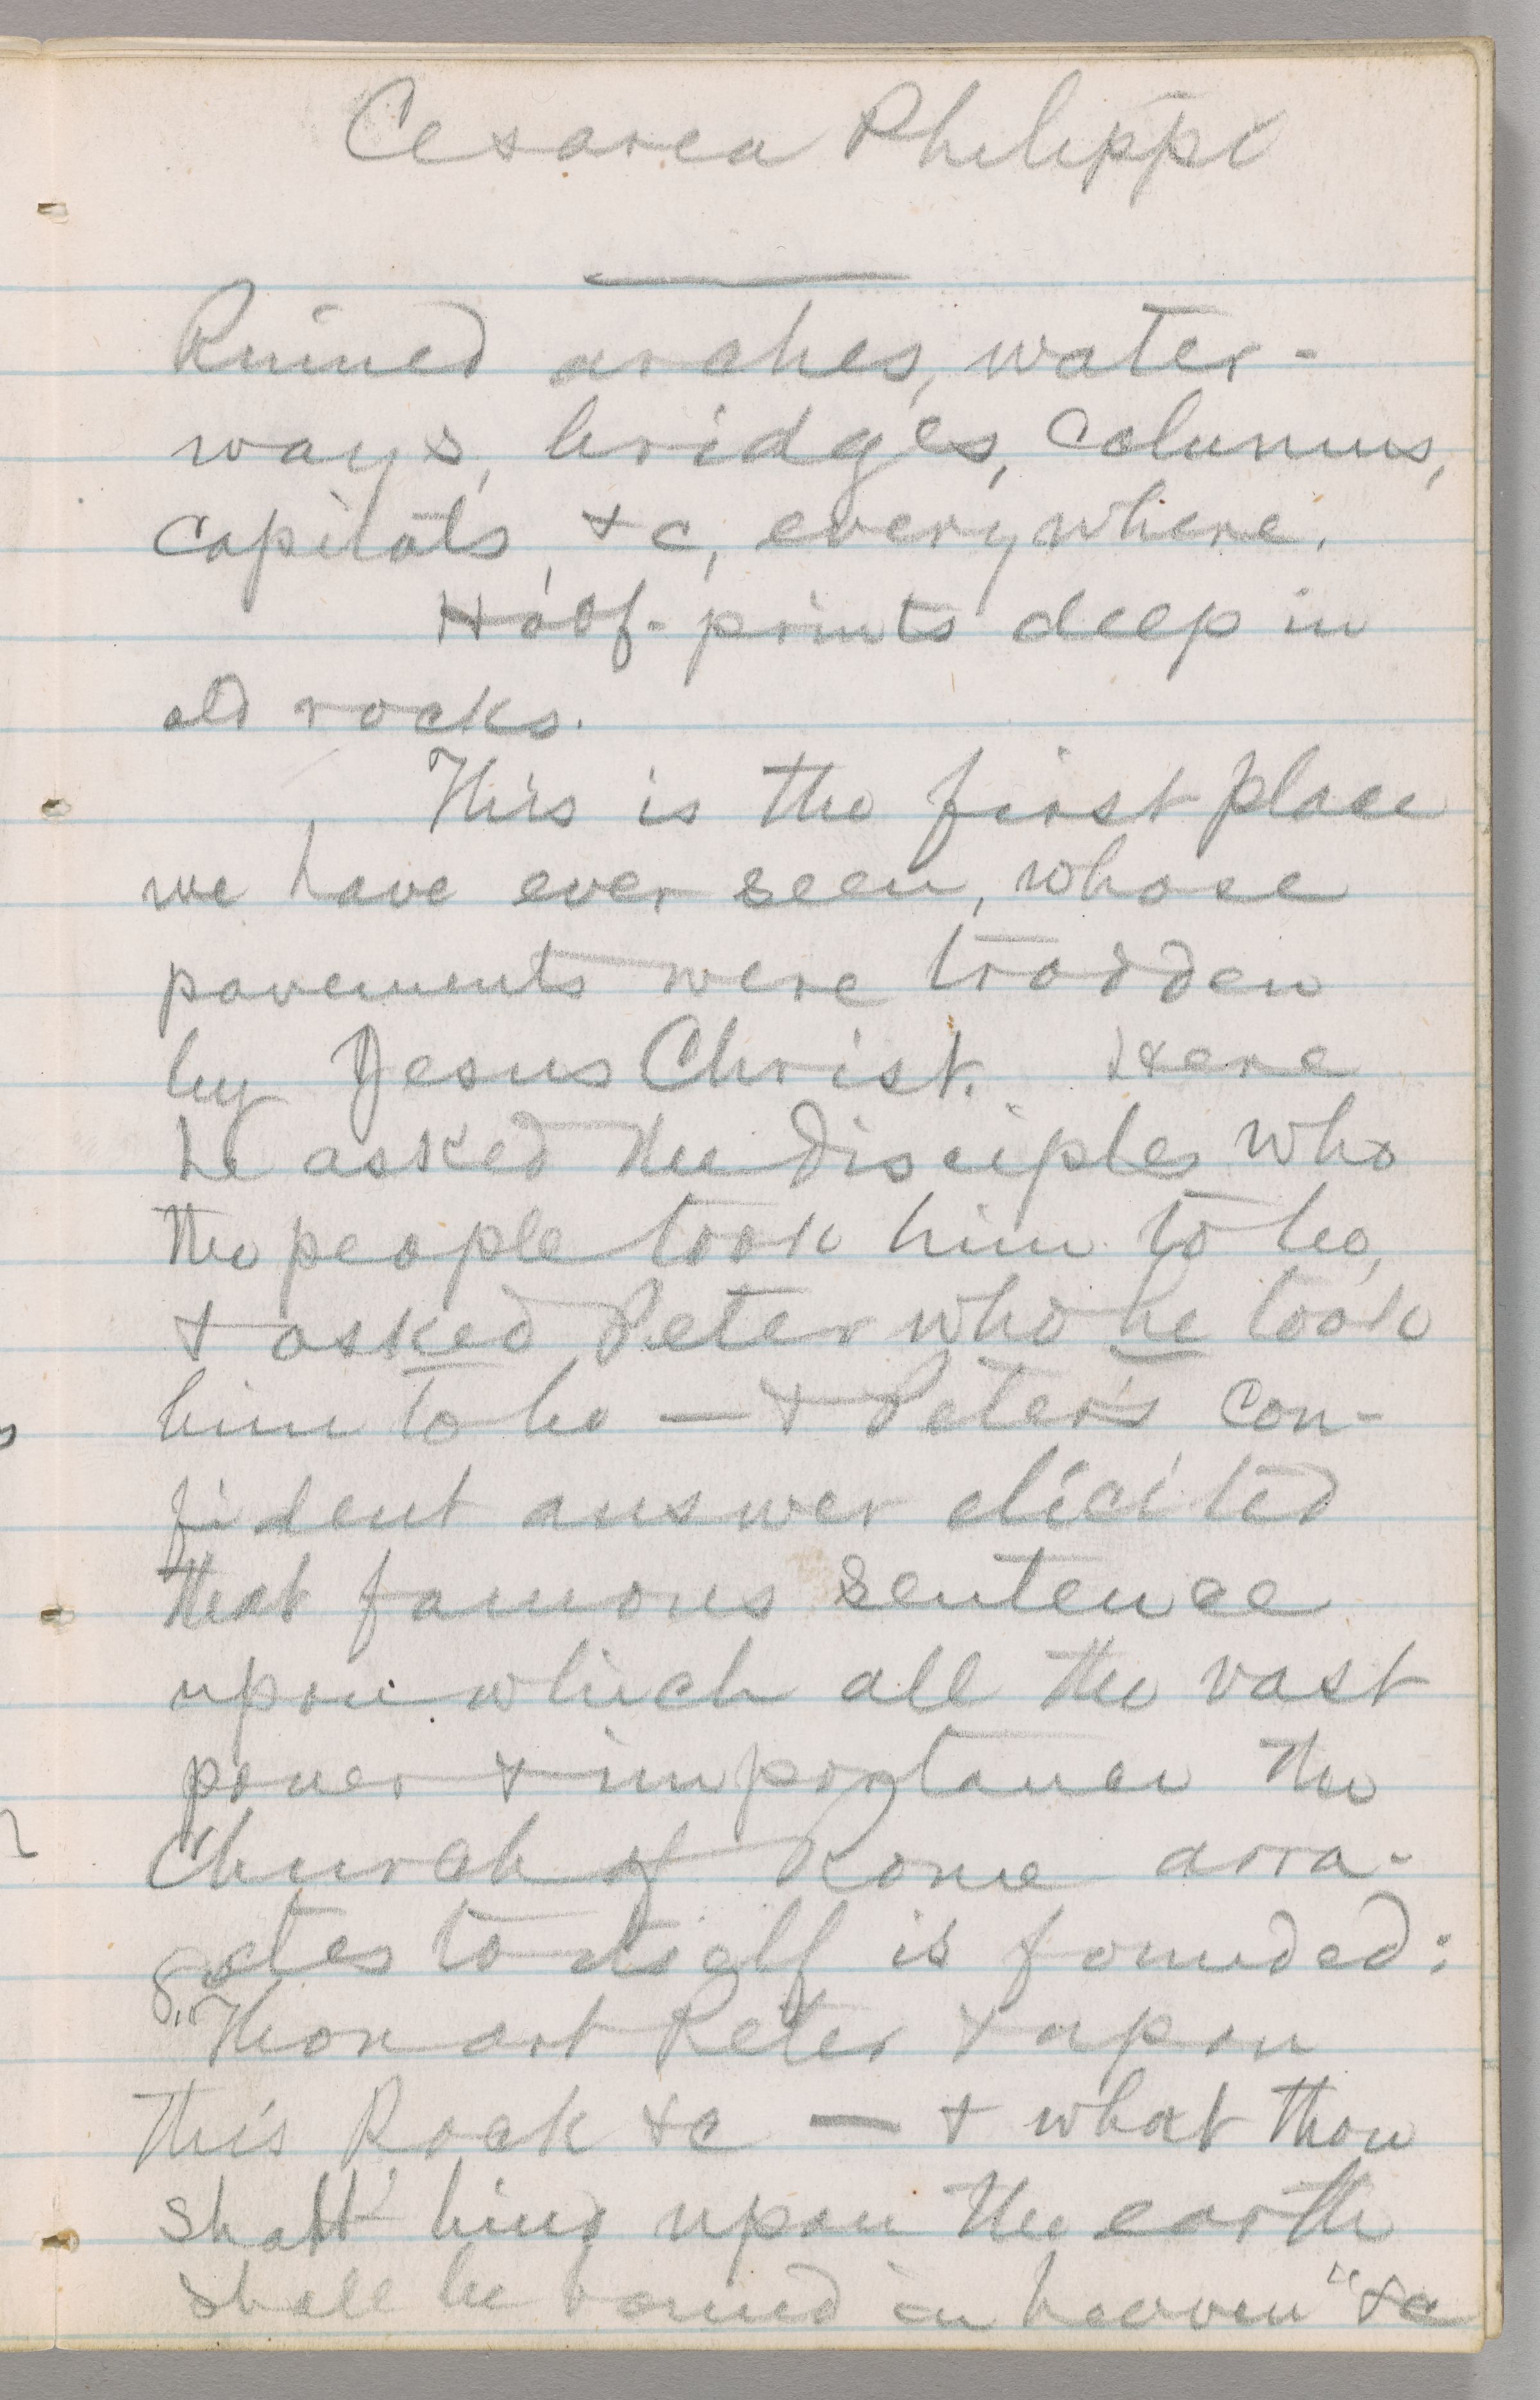 Cesarea Philippi
Ruined arches, water-
ways, bridges, columns,
capitals, &c, everywhere.
Hoof-prints deep in
old rocks.
This is the first place
we have ever seen, whose
pavements were trodden
by Jesus Christ. Here
he asked the disciples who
the people took him to be,
& asked Peter who he took
him to be — & Peter's con-
fident answer elicited
that famous sentence
upon which all the vast
power & importance the
Church of Rome arro-
gates to itself is founded:
"Thou art Peter & upon
this Rock &c — & what thou
shalt bind upon the earth
shall be bound in heaven" &c